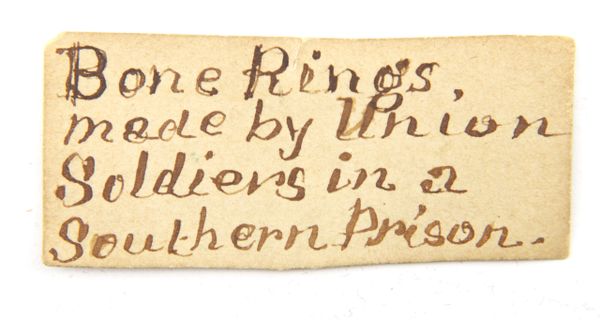 Bone Rings,
made by Union
Soldiers in a
Southern Prison.